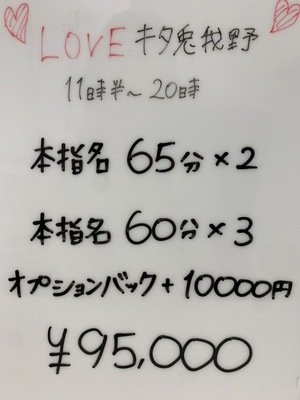 LOVE キタ兎我野
11時半～20時
本指名 65分×2
本指名 60分×3
オプションバック+10000円
¥95,000